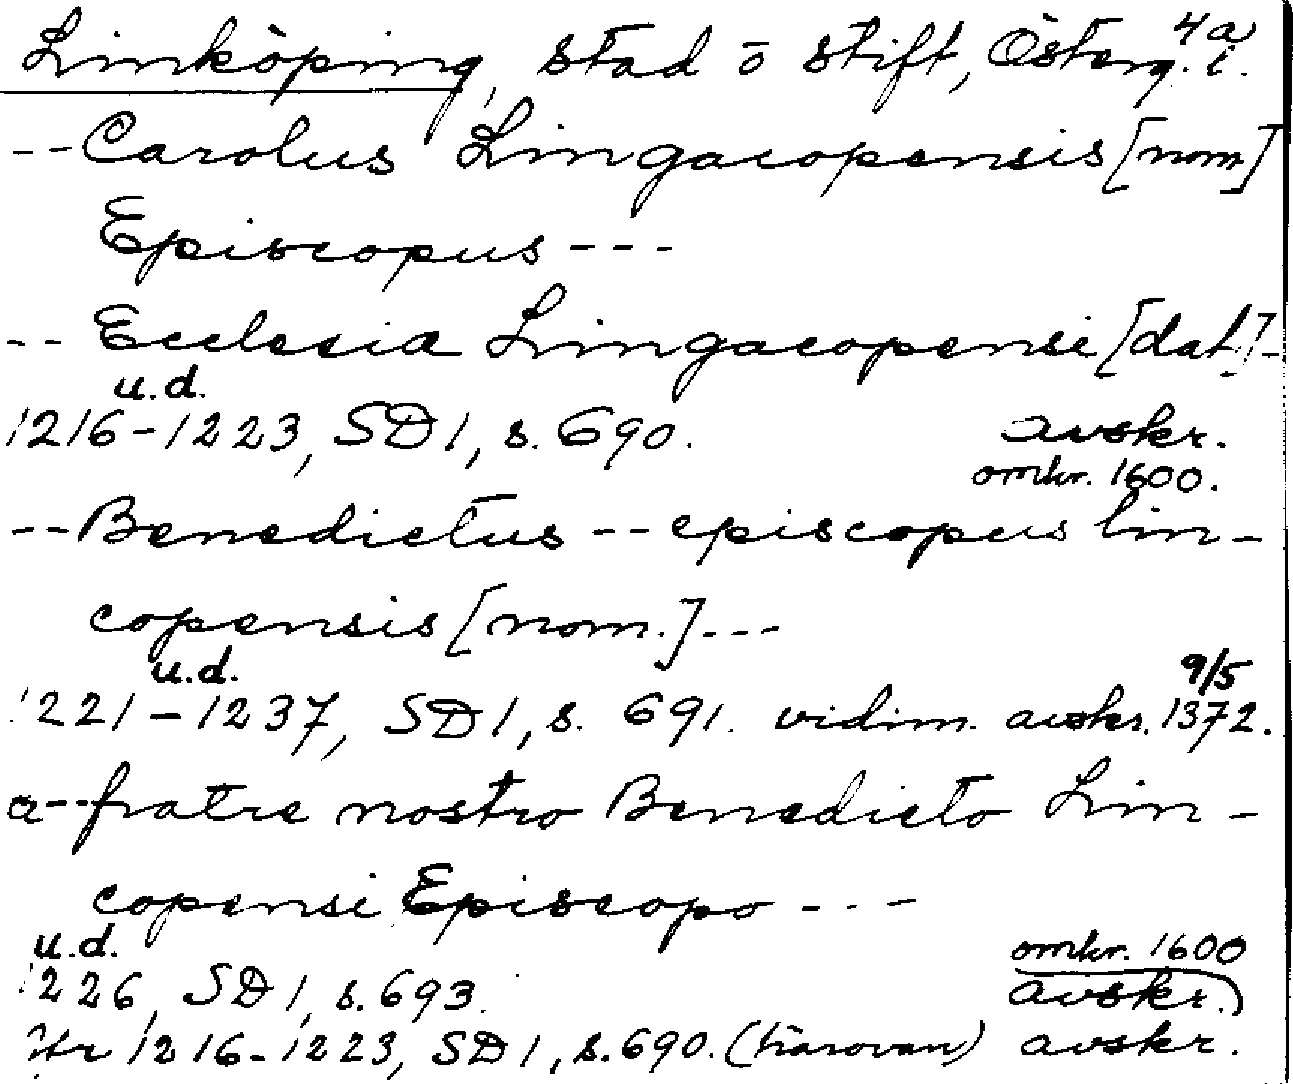 4a
Linköping, stad o stift, Österg. l.
--Carolus Lingacopensis [nom]
Episcopus ---
-- Ecclesia Lingacopensi [dat]-
u.d.
1216-1223, SD 1, s. 690. avskr.
omkr. 1600.
--Benedictus -- episcopus lin-
copensis [nom.]---
u.d. 9/5
1221-1237, SD 1, s. 691. vidim. avskr. 1372.
a--fratre nostro Benedicto Lin-
copensi Episcopo ---
u.d. omkr. 1600
1226, SD 1, s. 693. avskr.)
1216-1223, SD 1, s. 690. (härovan) avskr.